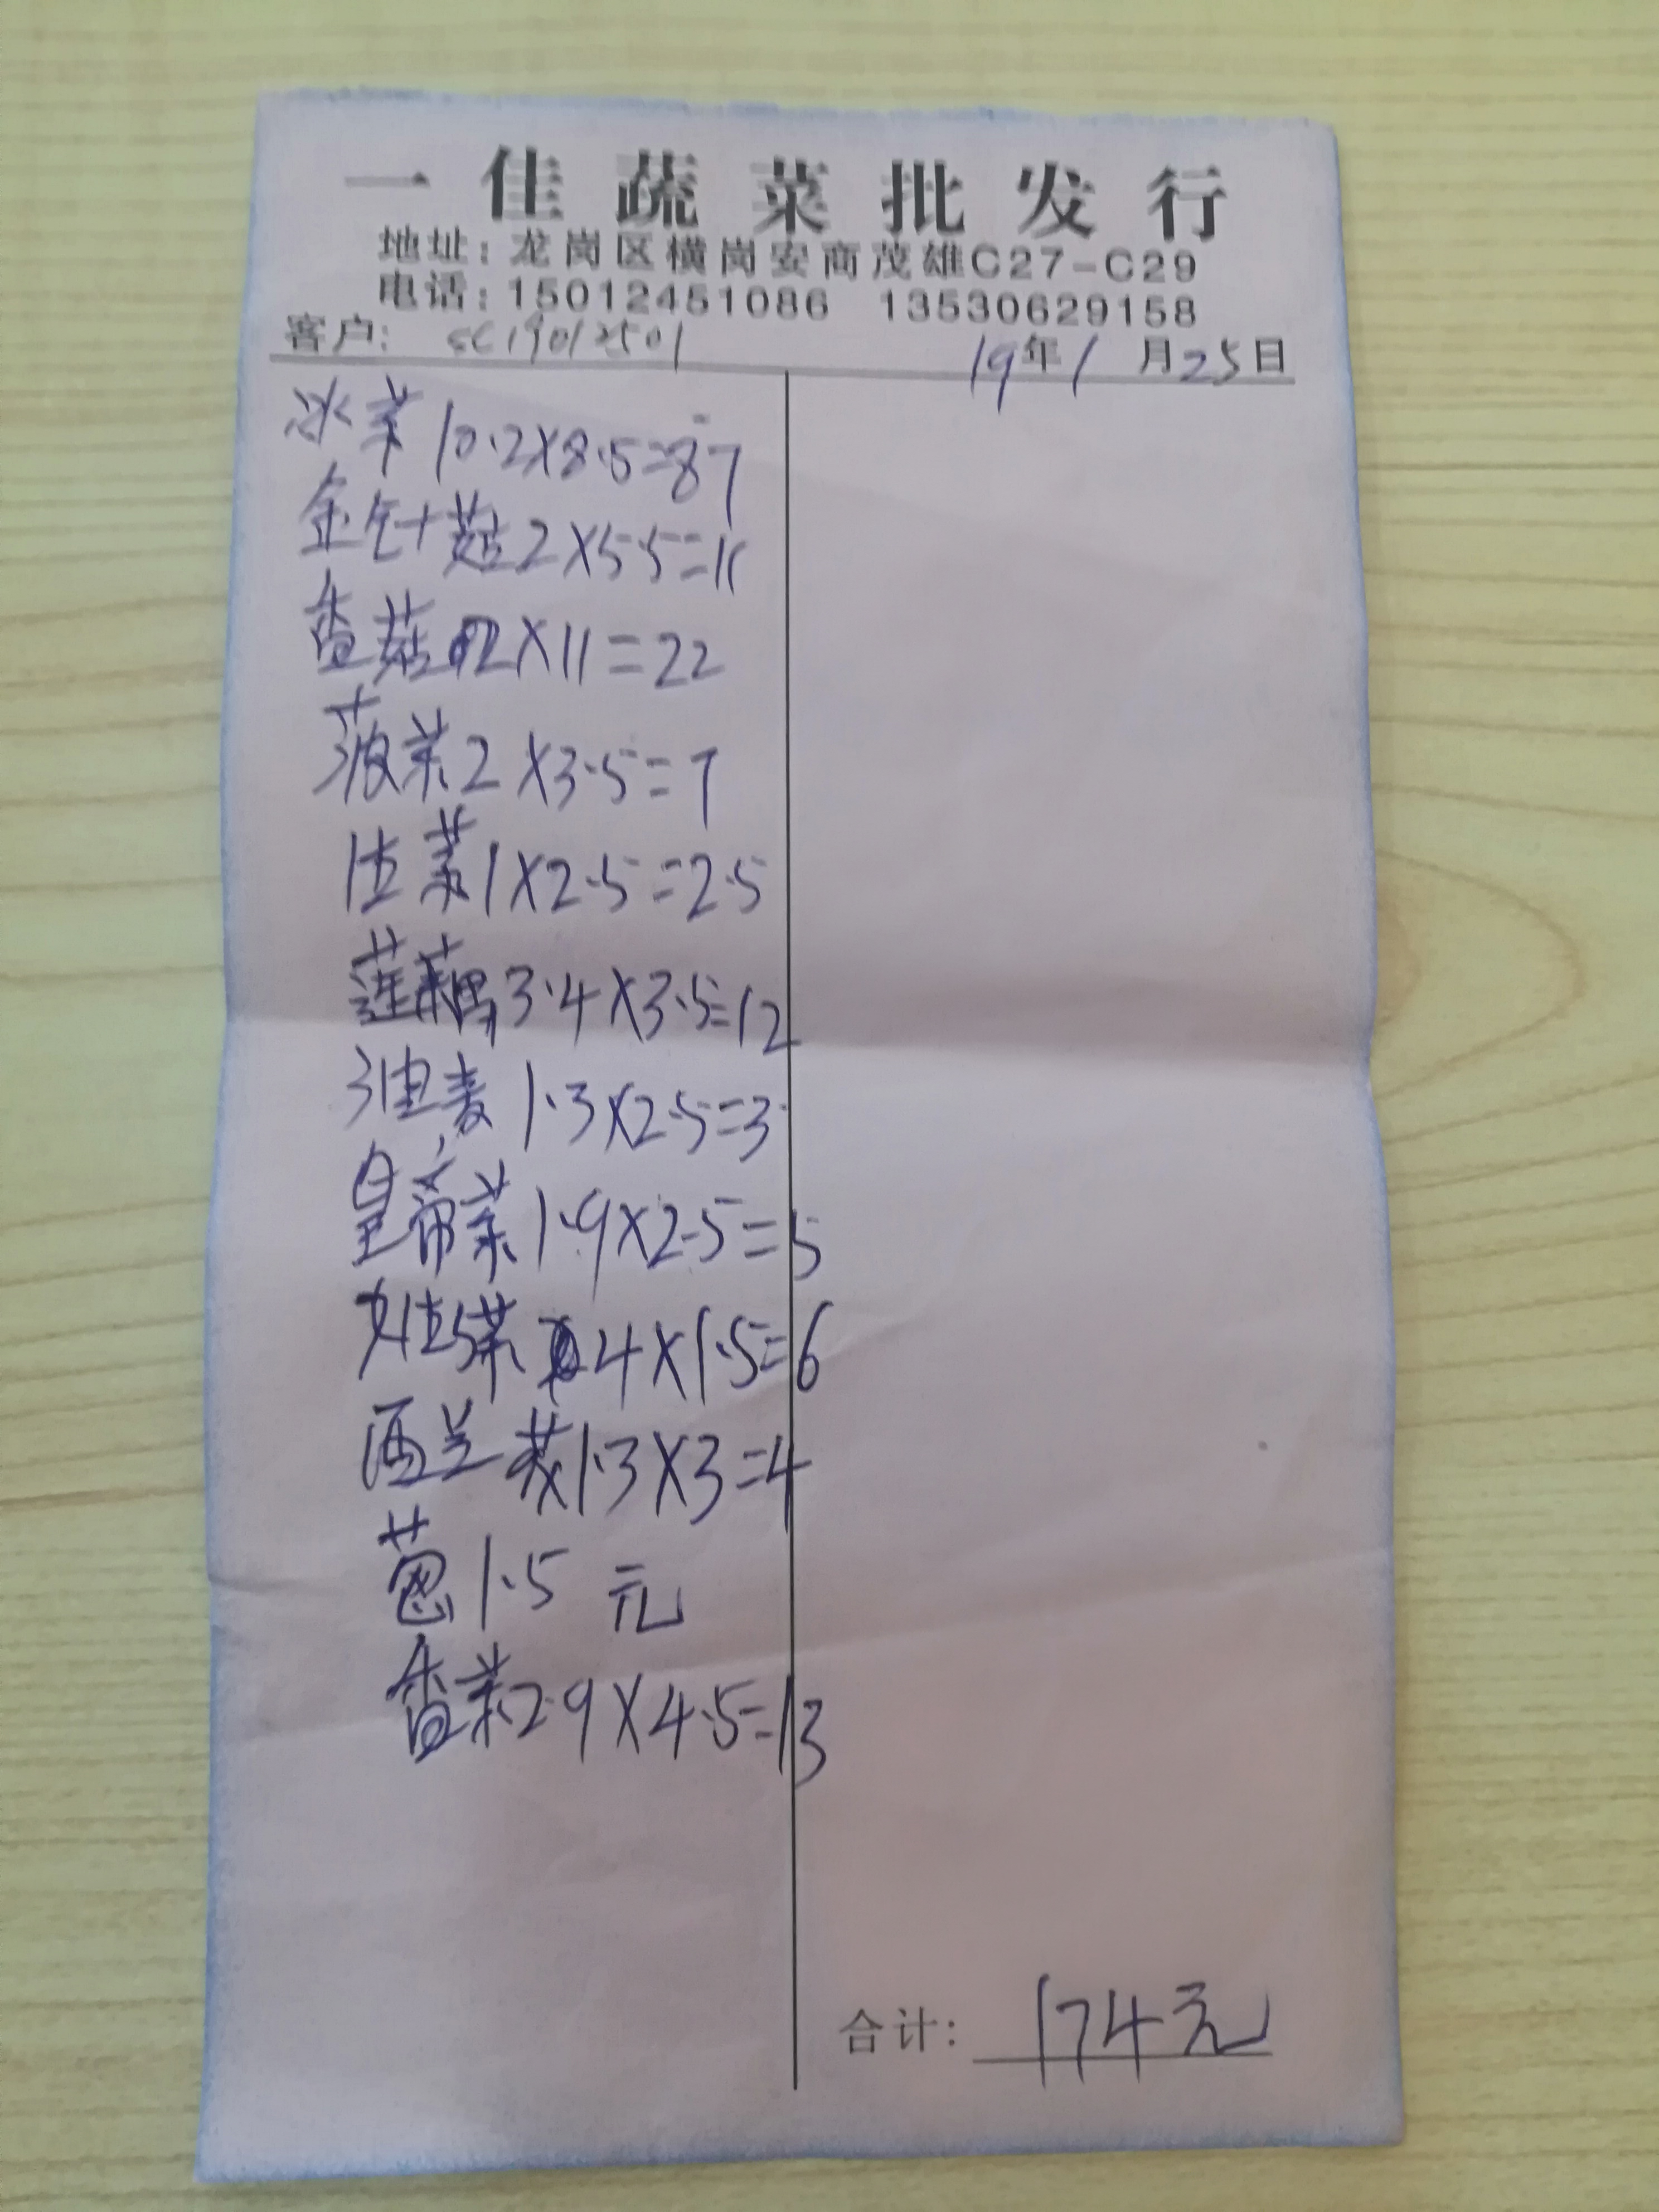 一佳蔬菜批发行
地址：龙岗区横岗安商茂雄C27-C29
电话：15012451086 13530629158
客户： SC19012501
19年1月25日
冰菜10.2X8.5=87
金针菇2X5.5=11
香菇2X11=22
菠菜2X3.5=7
生菜1X2.5=2.5
莲藕3.4X3.5=12
油麦1.3X2.5=3
皇帝菜1.9X2.5=5
娃娃菜4X1.5=6
西兰花1.3X3=4
葱1.5元
香菜2.9X4.5=13
合计：174元